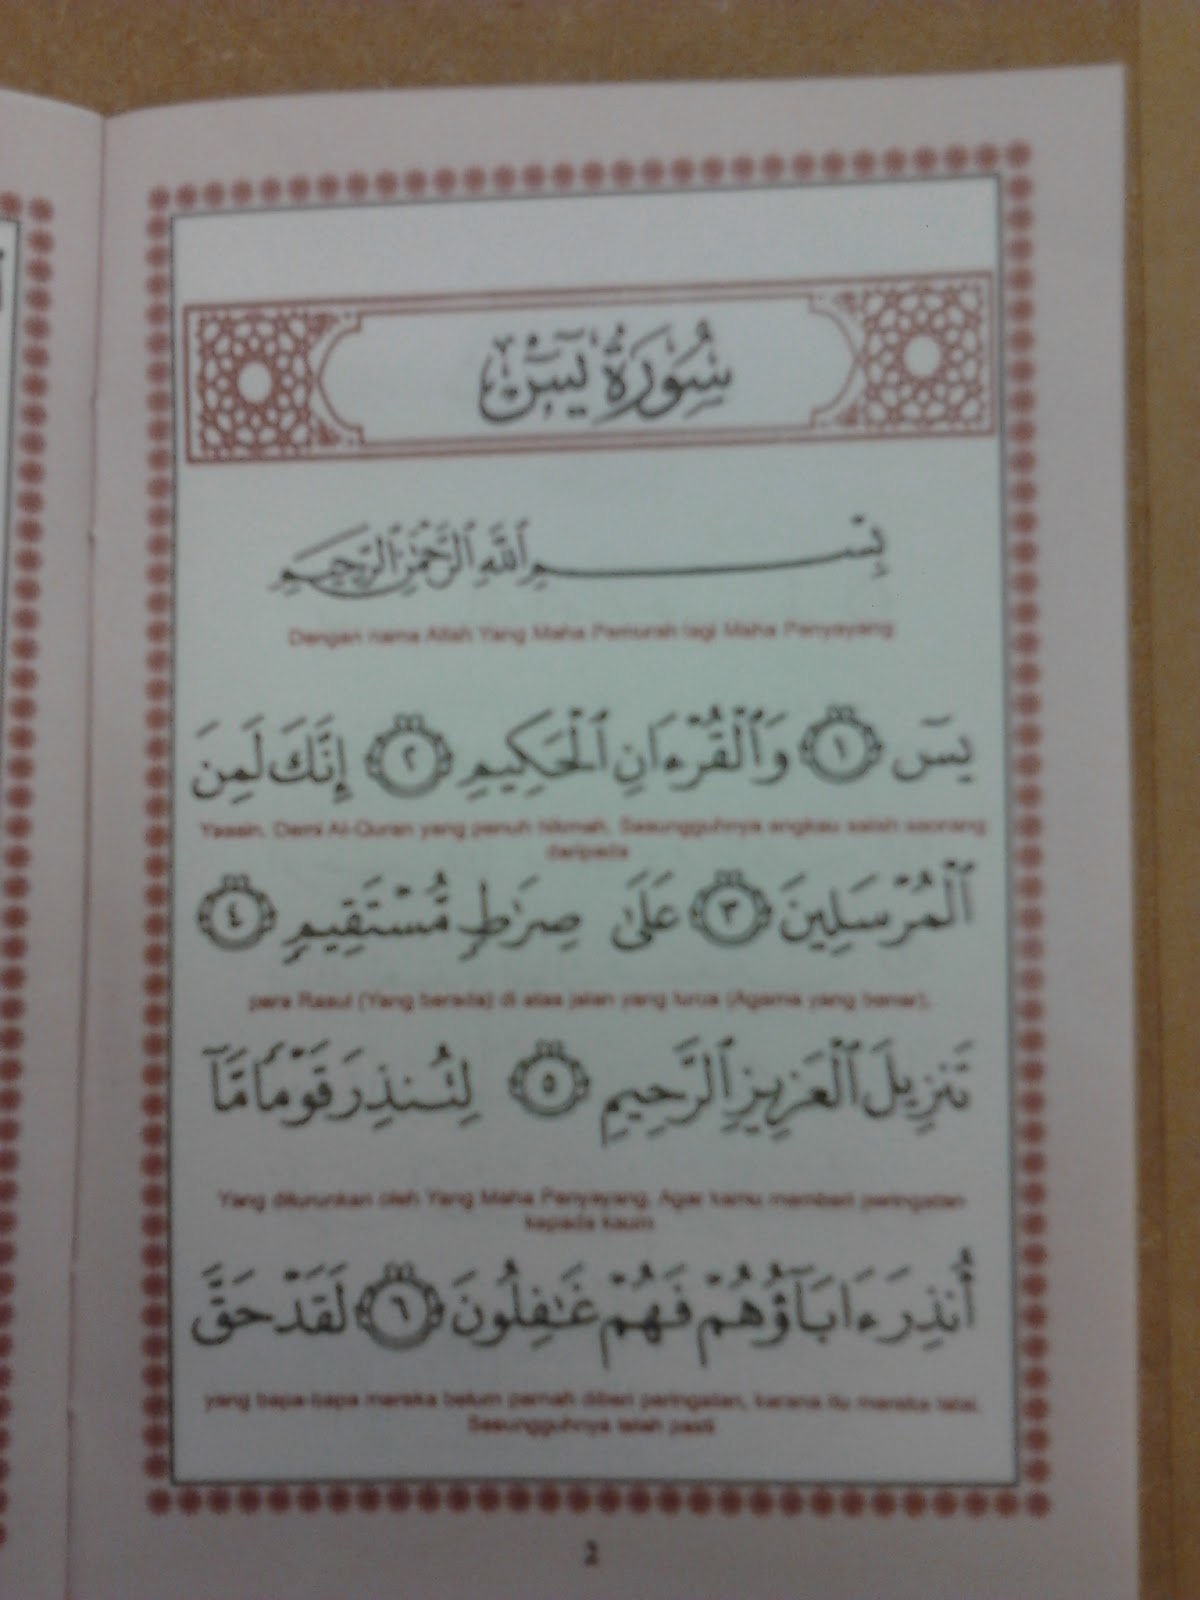 سُورَةُ يسٓ
بِسْمِ ٱللَّهِ ٱلرَّحْمَٰنِ ٱلرَّحِيمِ
Dengan nama Allah Yang Maha Pemurah lagi Maha Penyayang
يسٓ ١ وَٱلْقُرْءَانِ ٱلْحَكِيمِ ٢ إِنَّكَ لَمِنَ
Yaasin. Demi Al-Quran yang penuh hikmah. Sesungguhnya engkau salah seorang
daripada
ٱلْمُرْسَلِينَ ٣ عَلَىٰ صِرَٰطٍ مُّسْتَقِيمٍ ٤
para Rasul (Yang berada) di atas jalan yang lurus (Agama yang benar),
تَنزِيلَ ٱلْعَزِيزِ ٱلرَّحِيمِ ٥ لِتُنذِرَ قَوْمًا مَّآ
Yang diturunkan oleh Yang Maha Penyayang. Agar kamu memberi peringatan
kepada kaum
أُنذِرَ ءَابَآؤُهُمْ فَهُمْ غَٰفِلُونَ ٦ لَقَدْ حَقَّ
yang bapa-bapa mereka belum pernah diberi peringatan, karena itu mereka lalai.
Sesungguhnya telah pasti
2